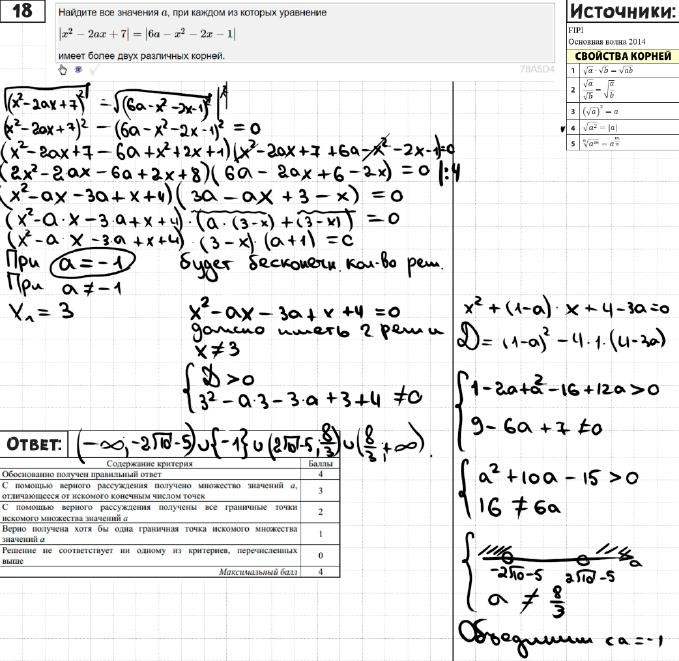 18
Найдите все значения a, при каждом из которых уравнение
|x² − 2ax + 7| = |6a − x² − 2x − 1|
имеет более двух различных корней.
78A5D4
Источники:
FIPI
Основная волна 2014
СВОЙСТВА КОРНЕЙ
1 √a · √b = √ab
2 √a/√b = √(a/b)
3 (√a)² = a
4 √a² = |a|
5
√(x²-2ax+7)² = √(6a-x²-2x-1)² |²
(x²-2ax+7)² - (6a-x²-2x-1)² = 0
(x²-2ax+7-6a+x²+2x+1)(x²-2ax+7+6a-x²-2x-1)=0
(2x²-2ax-6a+2x+8)(6a-2ax+6-2x)=0 |:4
(x²-ax-3a+x+4)(3a-ax+3-x)=0
(x²-a·x-3·a+x+4)·(a·(3-x)+(3-x))=0
(x²-a·x-3a+x+4)·(3-x)·(a+1)=0
При a=-1 будет бесконечн. кол-во реш.
При a≠-1
x₁=3
x²-ax-3a+x+4=0
должно иметь 2 реш и
x≠3
{ D>0
3²-a·3-3·a+3+4≠0
x²+(1-a)·x+4-3a=0
D=(1-a)²-4·1·(4-3a)
{ 1-2a+a²-16+12a>0
9-6a+7≠0
{ a²+10a-15>0
16≠6a
{ -2√10-5 2√10-5 a
a≠8/3
Объединим с a=-1
ОТВЕТ: (-∞;-2√10-5)∪{-1}∪(2√10-5;8/3)∪(8/3;+∞).
Содержание критерия Баллы
Обоснованно получен правильный ответ 4
С помощью верного рассуждения получено множество значений a, отличающееся от искомого конечным числом точек 3
С помощью верного рассуждения получены все граничные точки искомого множества значений a 2
Верно получена хотя бы одна граничная точка искомого множества значений a 1
Решение не соответствует ни одному из критериев, перечисленных выше 0
Максимальный балл 4